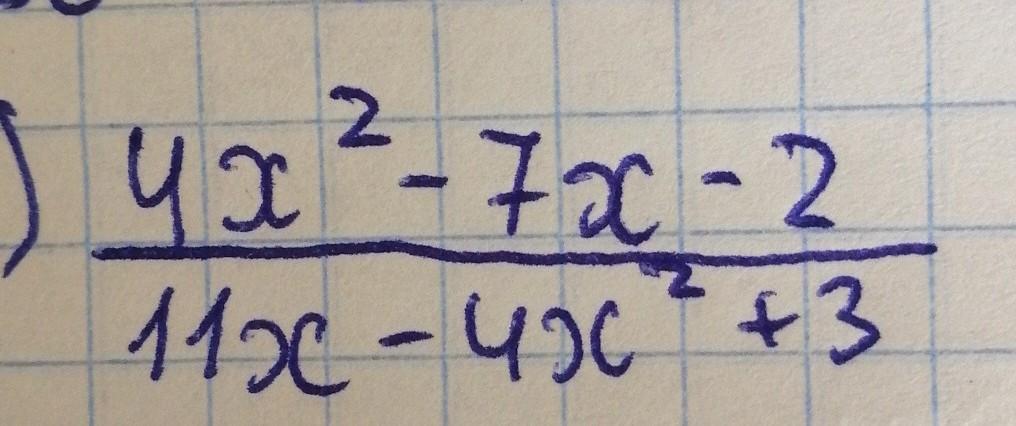 ) 4x² - 7x - 2
11x - 4x² + 3